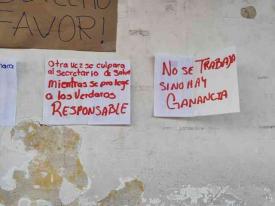 FAVOR!
Otra vez se culpara
al secretario de salud
mientras se protege
a los Verdaros
RESPONSABLE
NO SE TRABAJA
SINO HAY
GANANCIA